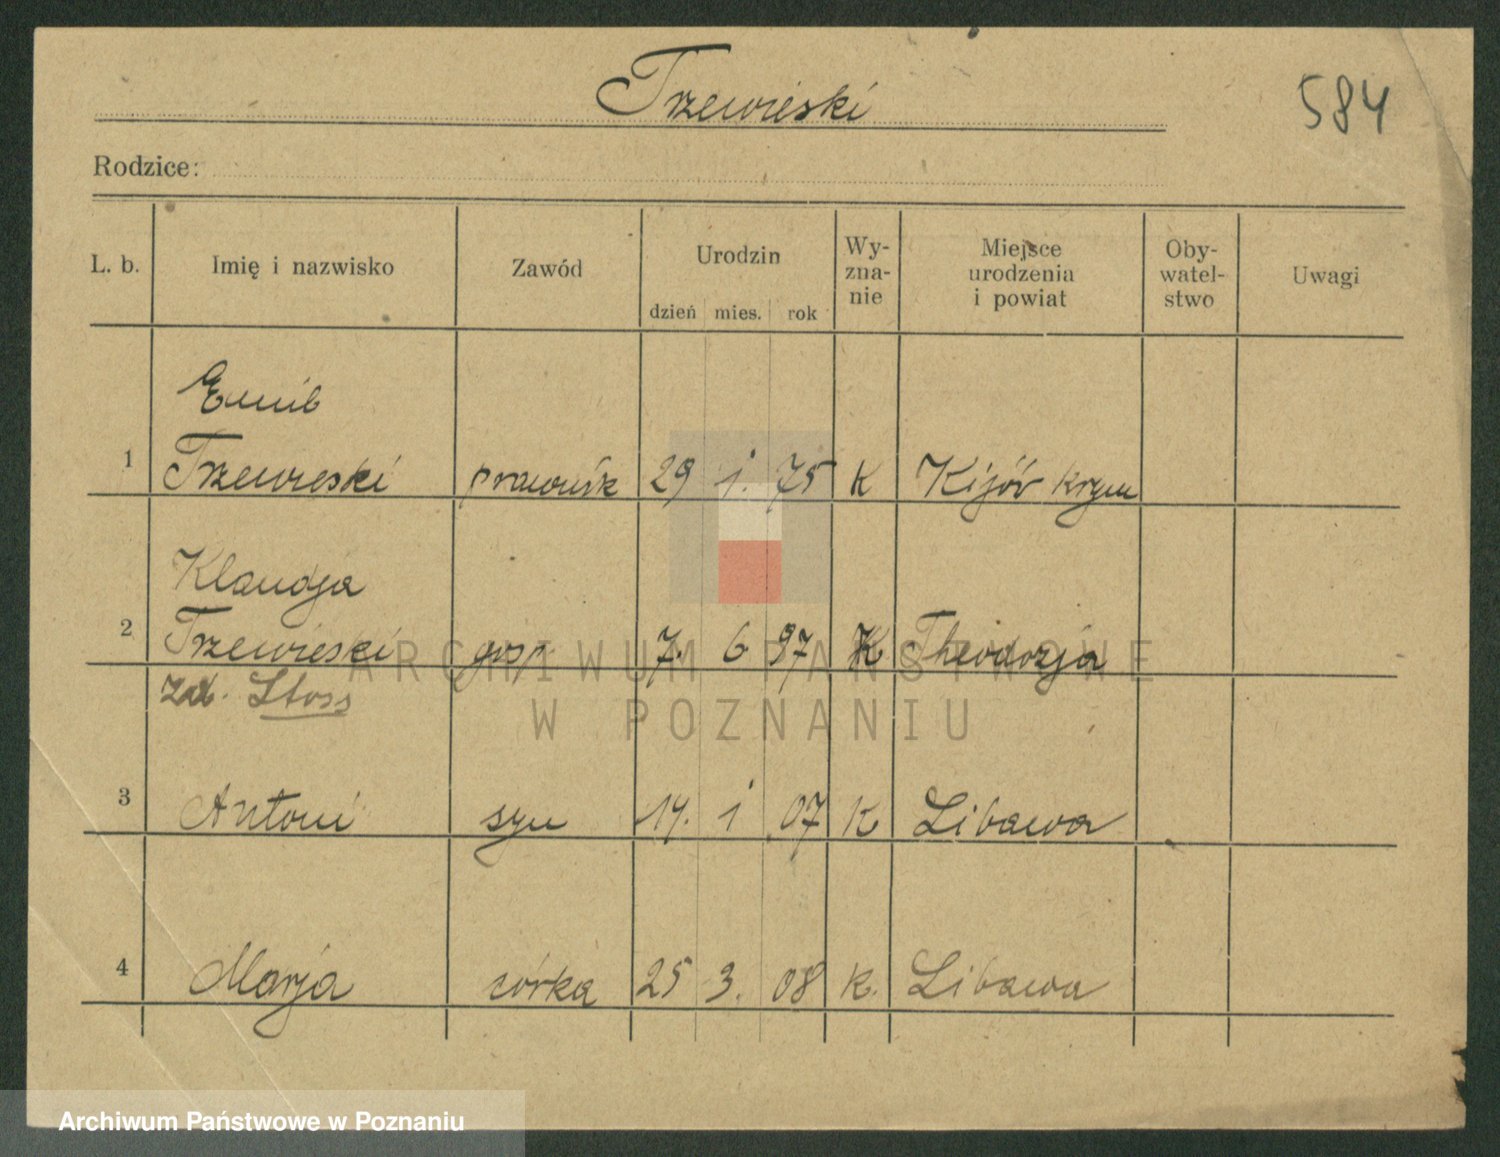 Trzewieski
584
Rodzice:
L. b. Imię i nazwisko Zawód Urodzin dzień mies. rok Wy-zna-nie Miejsce urodzenia i powiat Oby-watel-stwo Uwagi
Emil
1 Trzewieski prawnik 29 1. 75 K Kijów krym
Klaudja
2 Trzewieski gosp 7. 6 97 K Theodozja
zd. Stoss
3 Antoni syn 14. 1 07 K Libawa
4 Marja córka 25 3. 08 K. Libawa
ARCHIWUM PAŃSTWOWE
W POZNANIU
Archiwum Państwowe w Poznaniu